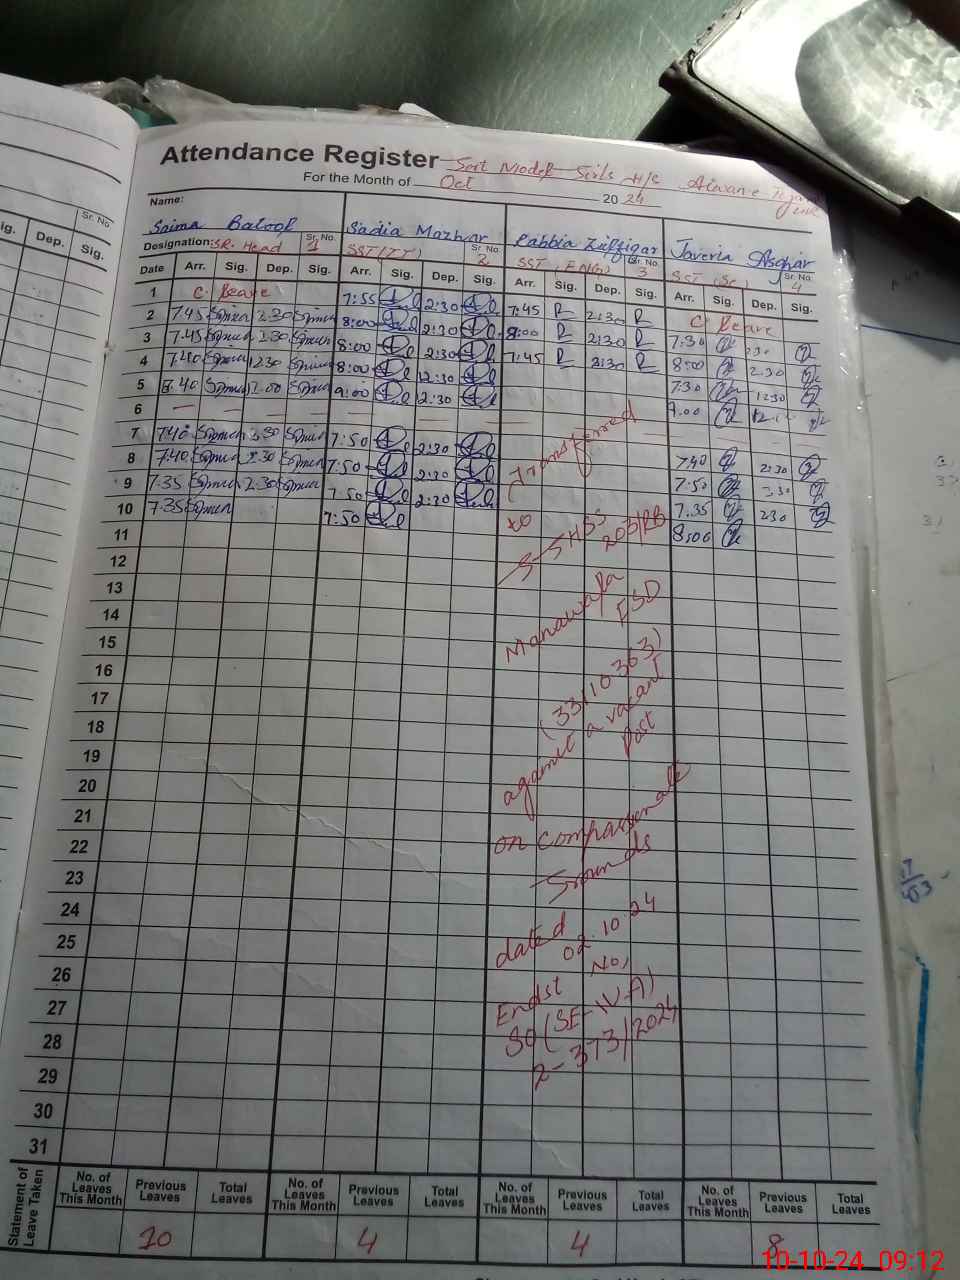 Attendance Register Govt Model Girls H/S Aiwan-e-
For the Month of Oct 2024
Name:
Saima Batool Sadia Mazhar Rabbia Zulfiqar Javeria Asghar
Designation: SR. Head Sr. No. 1 SST (IT) Sr. No. 2 SST (ENG) Sr. No. 3 SST (Sc) Sr. No. 4
Date Arr. Sig. Dep. Sig. Arr. Sig. Dep. Sig. Arr. Sig. Dep. Sig. Arr. Sig. Dep. Sig.
1 C. Leave 7:55 2:30 7:45 R 2:30 R C Leave
2 7.45 2.30 8:00 2:30 8:00 R 2:30 R 7.30 2.30
3 7.45 2.30 8:00 2:30 7:45 R 2:30 R 8:00 2.30
4 7.40 12.30 8:00 12:30 7.30 1230
5 8.40 2.00 9:00 2:30 9.00
6 — — — —
7 7.40 2.30 7:50 2:30 7.40 2:30
8 7.40 2.30 7:50 2:30 7.50 2.30
9 7.35 2.30 7:50 2:30 7.35 230
10 7.35 7:50 8:00
11
12
13
14
15
16
17
18
19
20
21
22
23
24
25
26
27
28
29
30
31
Transferred
to
GGHSS
203/RB
Manawala
FSD
(33110363)
against a vacant
Post
on compassionate
Grounds
dated
02.10.24
Endst No,
SO (SE-IV-A)
2-373/2024
Statement of Leave Taken
No. of Leaves This Month Previous Leaves Total Leaves No. of Leaves This Month Previous Leaves Total Leaves No. of Leaves This Month Previous Leaves Total Leaves No. of Leaves This Month Previous Leaves Total Leaves
10 4 4 8
10-10-24 09:12
Sig. Dep. Sr. No. Sig.